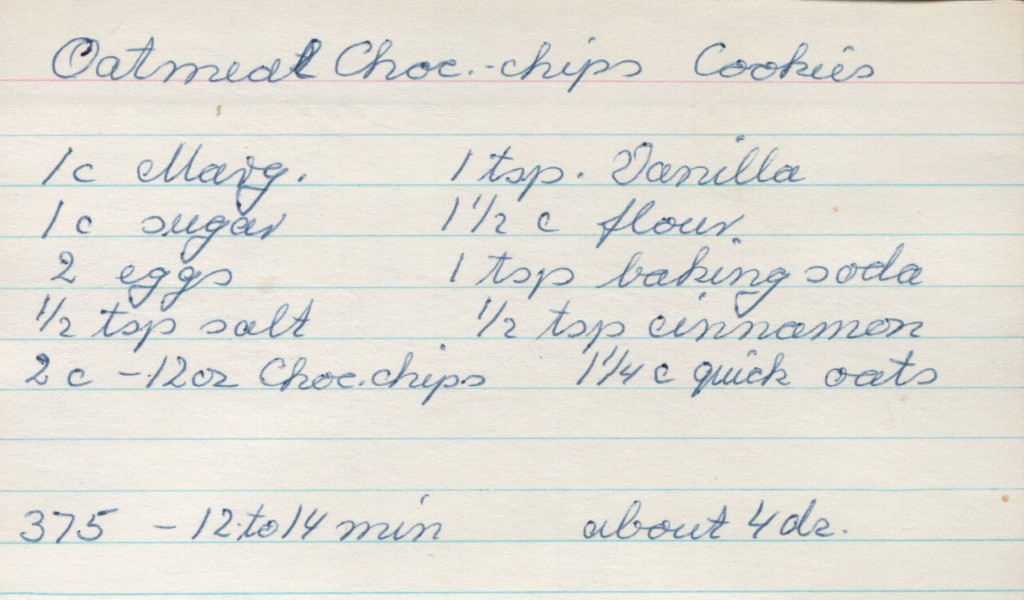 Oatmeal Choc.-chips Cookies
1 c Marg. 1 tsp. Vanilla
1 c sugar 1 1/2 c flour
2 eggs 1 tsp baking soda
1/2 tsp salt 1/2 tsp cinnamon
2 c - 12 oz Choc. chips 1 1/4 c quick oats
375 - 12 to 14 min about 4 dz.